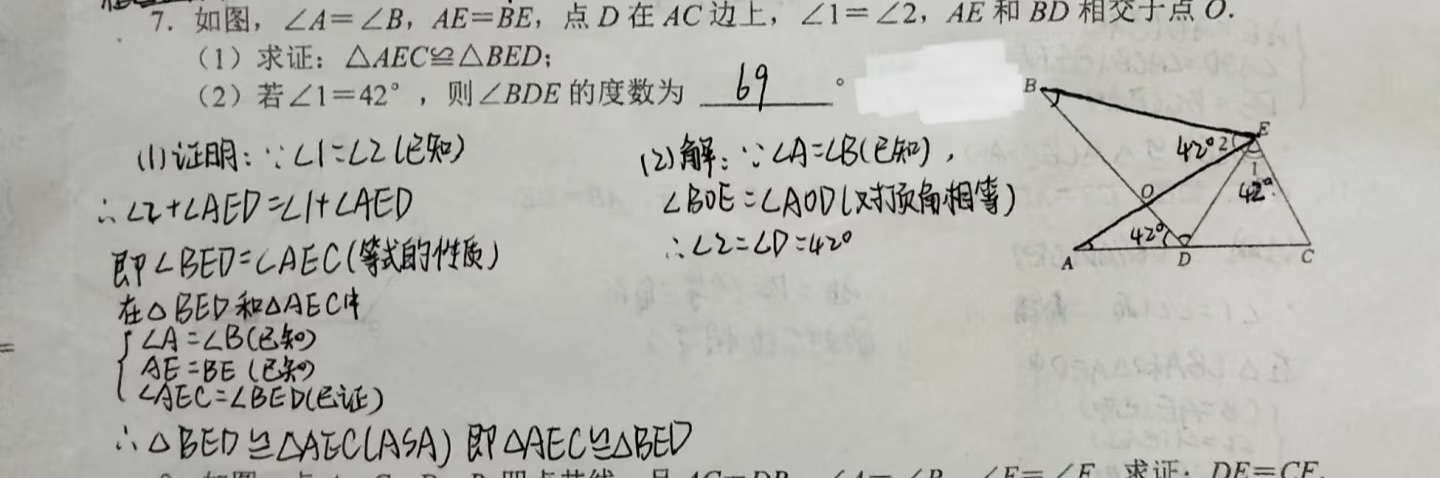 7. 如图，∠A＝∠B，AE＝BE，点 D 在 AC 边上，∠1＝∠2，AE 和 BD 相交于点 O.
（1）求证：△AEC≌△BED；
（2）若∠1＝42°，则∠BDE 的度数为 69 °
(1)证明：∵∠1=∠2(已知)
∴∠2+∠AED=∠1+∠AED
即∠BED=∠AEC(等式的性质)
在△BED和△AEC中
∠A=∠B(已知)
AE=BE(已知)
∠AEC=∠BED(已证)
∴△BED≌△AEC(ASA) 即△AEC≌△BED
(2)解：∵∠A=∠B(已知)，
∠BOE=∠AOD(对顶角相等)
∴∠2=∠D=42°
B
E
42° 2
1
42°
O
42°
A D C